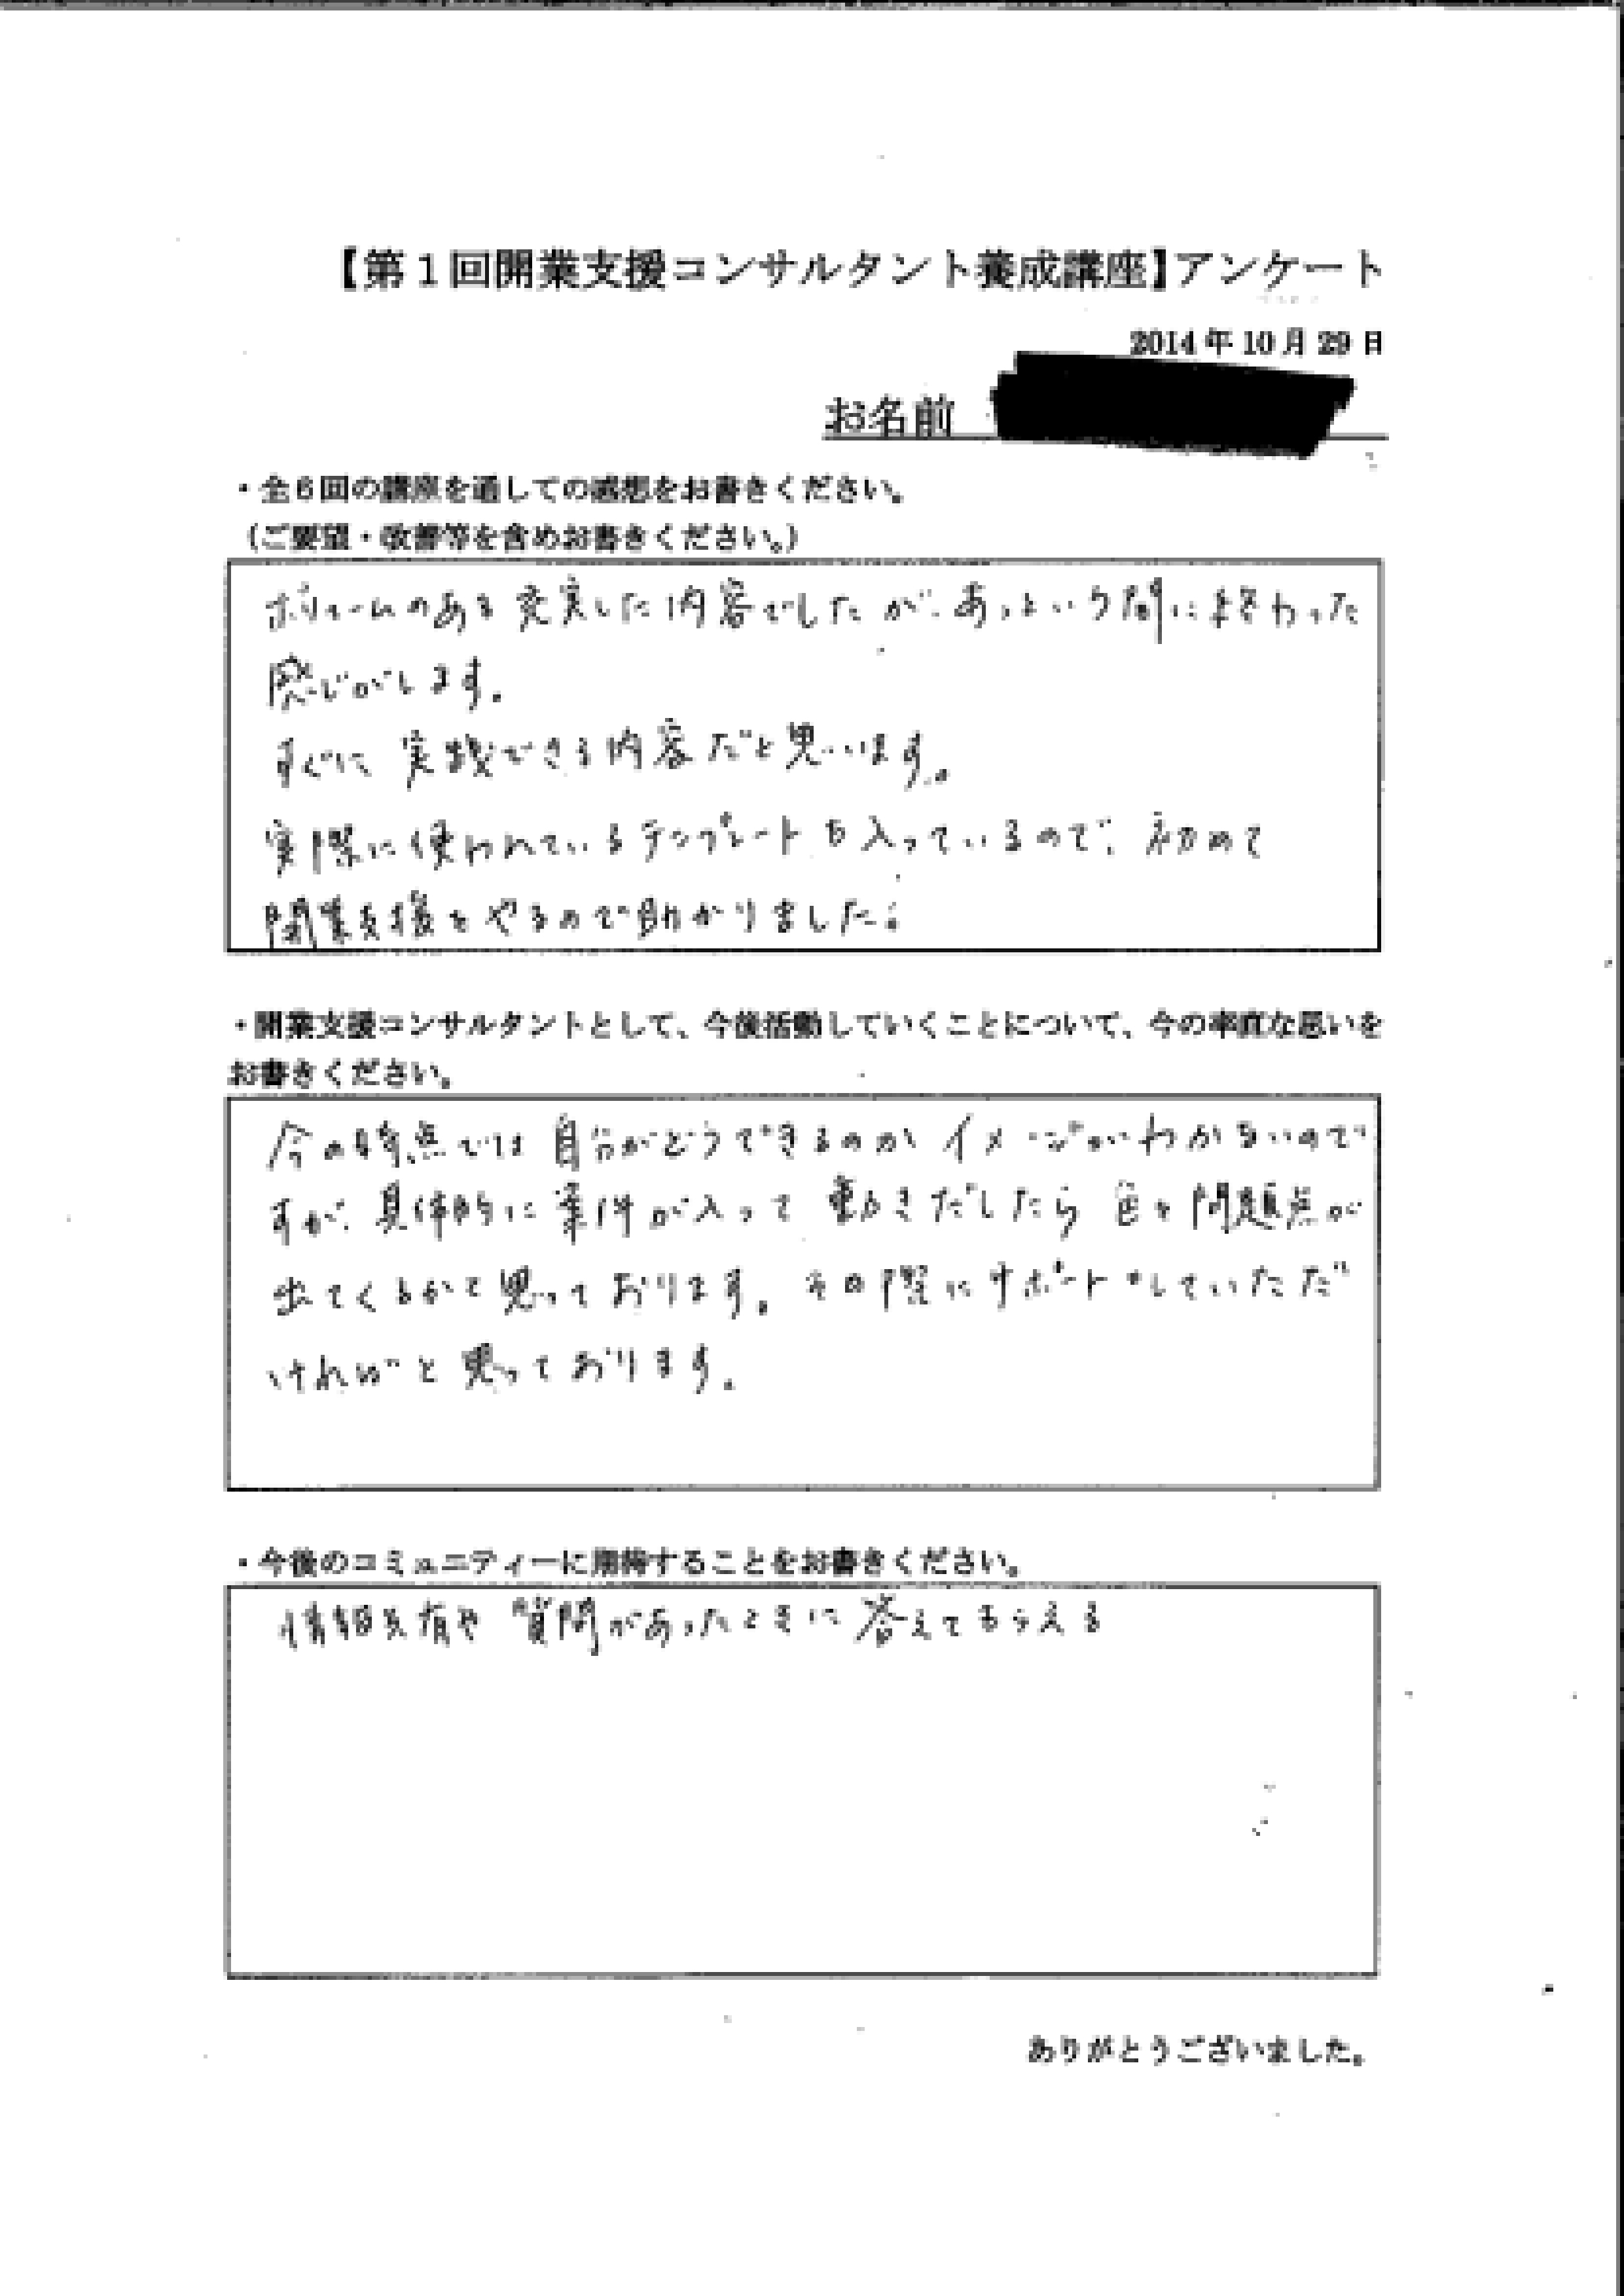 【第1回開業支援コンサルタント養成講座】アンケート
2014年10月29日
お名前
・全6回の講座を通しての感想をお書きください。
（ご要望・改善等を含めお書きください。）
ボリュームのある充実した内容でしたが、あっという間に終わった
感じがします。
すぐに実践できる内容だと思います。
実際に使われているテンプレートも入っているので、初めて
開業支援をやるので助かりました。
・開業支援コンサルタントとして、今後活動していくことについて、今の率直な思いを
お書きください。
今の時点では自分がどうできるのかイメージがわかないので
すが、具体的に案件が入って動きだしたら色々問題点が
出てくるかと思っております。その際にサポートしていただ
ければと思っております。
・今後のコミュニティーに期待することをお書きください。
情報共有や質問があったときに答えてもらえる
ありがとうございました。